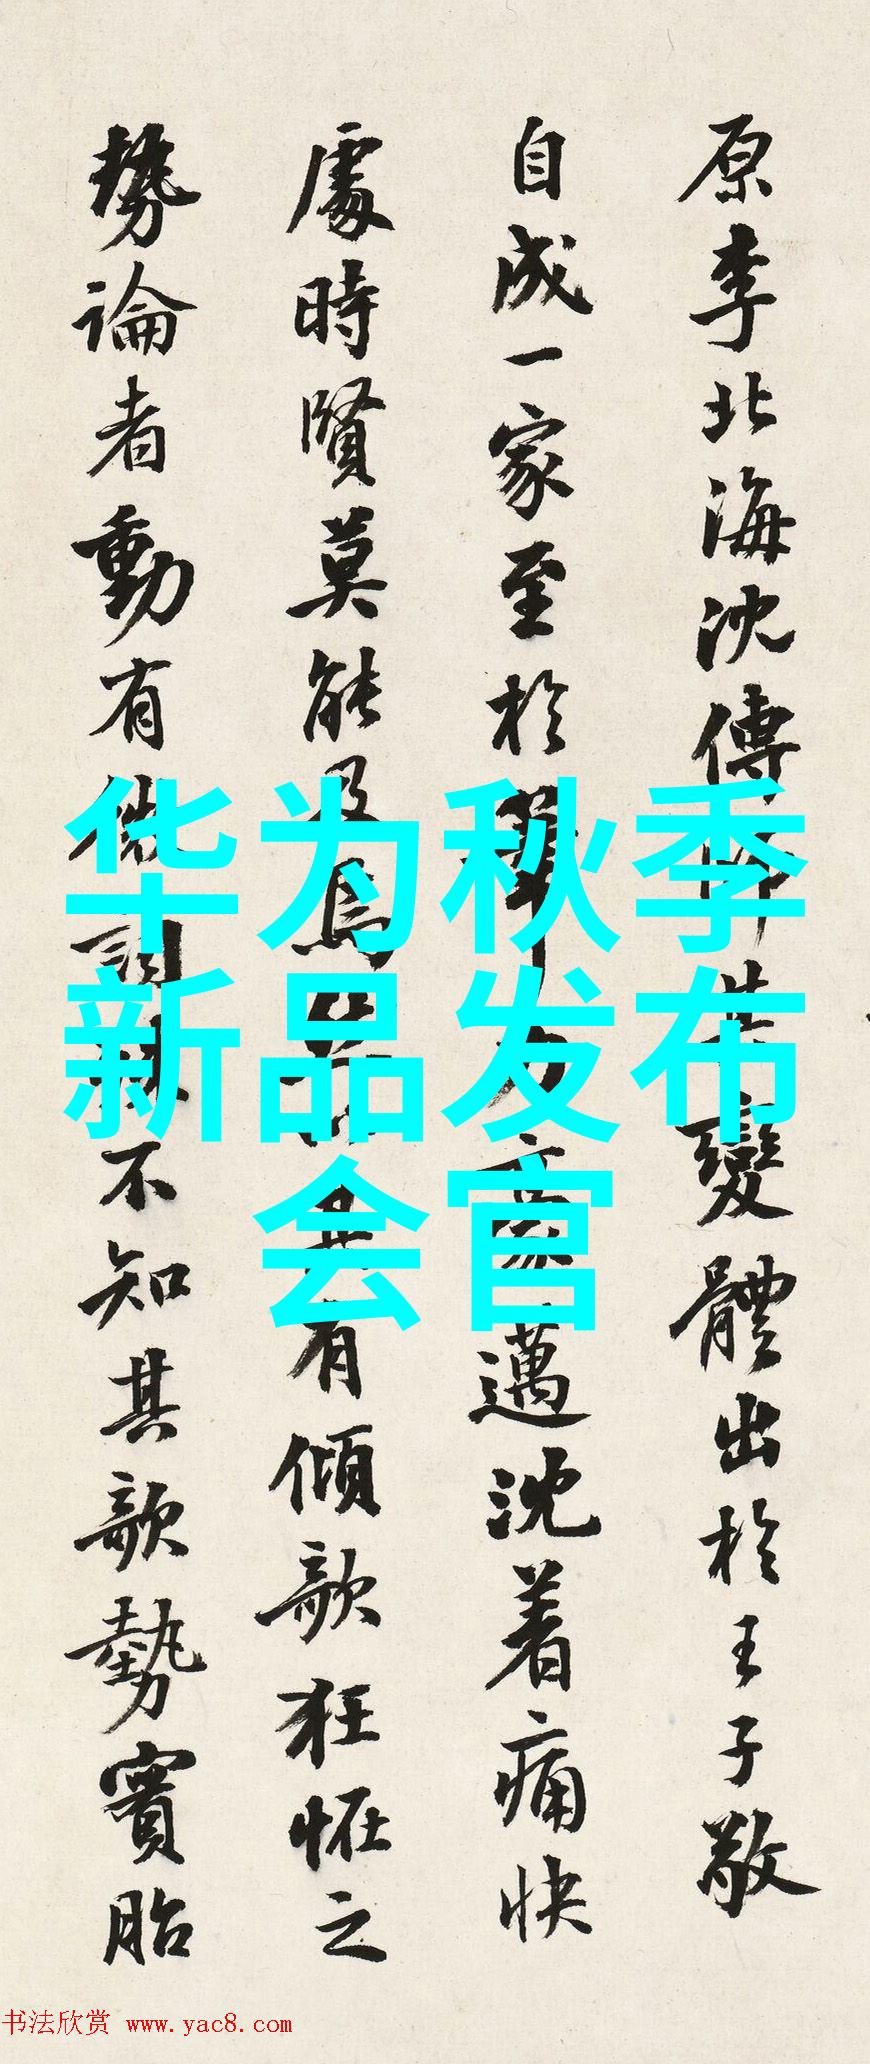 原李北海沈傳師其變體出於王子敬
自成一家至於筆力豪邁沈着痛快
處時賢莫能及焉有傾欹狂怪之
勢論者動有微詞殊不知其欹勢實胎
华为秋季
新品发布
会官
书法欣赏 www.yac8.com